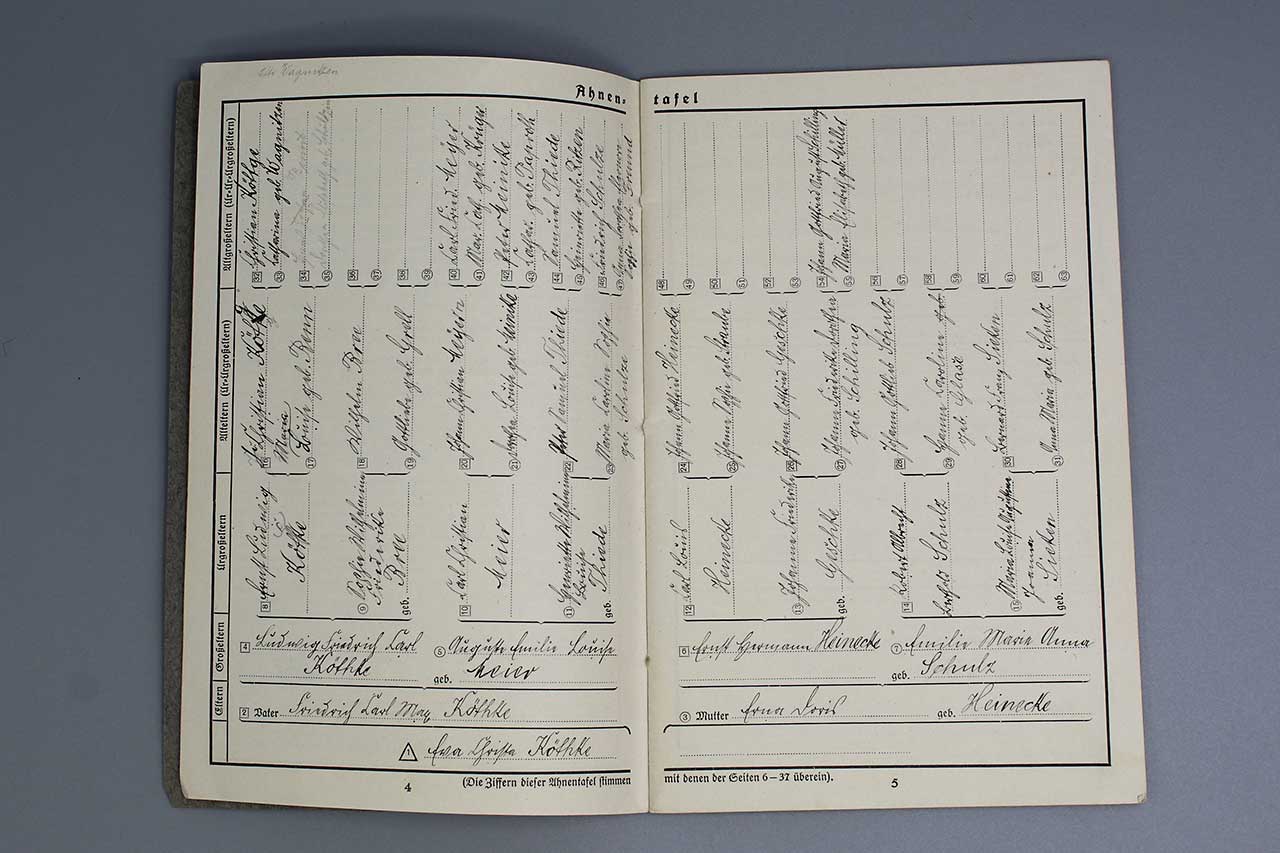 Ahnen-
tafel
Altgroßeltern (Ur-Ur-Urgroßeltern)
32 Christian Köthge
33 Catharina geb. Wagnitzen
34
35
36
37
38
39
40 Carl Fried. Meyer
41 Mar. Cath. geb. Krüger
42 Peter Heinike
43 Cathar. geb. Panroh
44 Daniel Thiede
45 Henriette geb. Riken
46 Friedrich Schulze
47
48
49
50
51
52
53
54 Johann Gottfried August Schilling
55 Maria Elisabeth geb. Müller
56
57
58
59
60
61
62
63
Alteltern (Ur-Urgroßeltern)
16 Christian Köthke
17 Maria Louise geb. Renn
18 Wilhelm Bree
19 Gottliebe geb. Grell
20 Johann Christian Meyer
21 Dorothea Louise geb. Heinike
22 Daniel Thiede
23 Maria Caroline Sophie
geb. Schulze
24 Johann Gottfried Heinecke
25 Johanne Sophie geb. Straube
26 Johann Gottfried Geschke
27 Johanne Friederike Dorothea
geb. Schilling
28 Johann Gottlieb Schulz
29 Johanne Caroline
geb. Glase
30 Bernard Franz Sieken
31 Anna Maria geb. Schulz
Urgroßeltern
8 Ernst Ludwig
Köthke
9 Sophie Wilhelmine
Friederike
geb. Bree
10 Carl Christian
Meier
11 Henriette Wilhelmine
Louise
geb. Thiede
12 Carl Louis
Heinecke
13 Johanne Friederike
geb. Geschke
14 Robert Albrecht
Berthold Schulz
15 Maria Louise Augustine
Joanna
geb. Sieken
Großeltern
4 Ludwig Friedrich Carl
Köthke
5 Auguste Emilie Louise
geb. Meier
6 Ernst Hermann Heinecke
7 Emilie Marie Anna
geb. Schulz
Eltern
2 Vater Friedrich Carl Max Köthke
3 Mutter Erna Doris geb. Heinecke
1 Eva Christa Köthke
(Die Ziffern dieser Ahnentafel stimmen
mit denen der Seiten 6–37 überein).
4
5